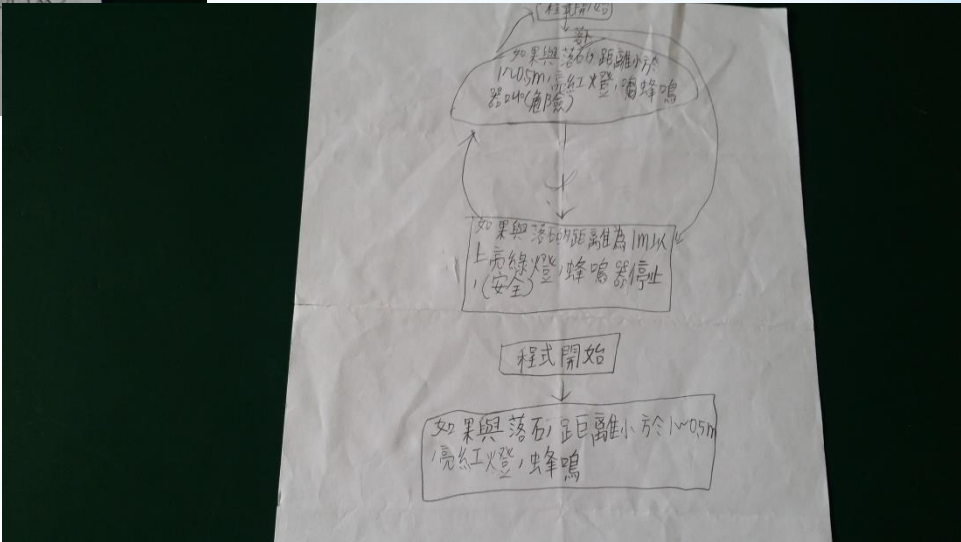 程式開始
如果與落石距離小於
1~0.5m,亮紅燈,蜂鳴
器叫(危險)
如果與落石的距離為1m以
上亮綠燈,蜂鳴器停止
,(安全)
程式開始
如果與落石,距離小於1~0.5m
,亮紅燈,蜂鳴